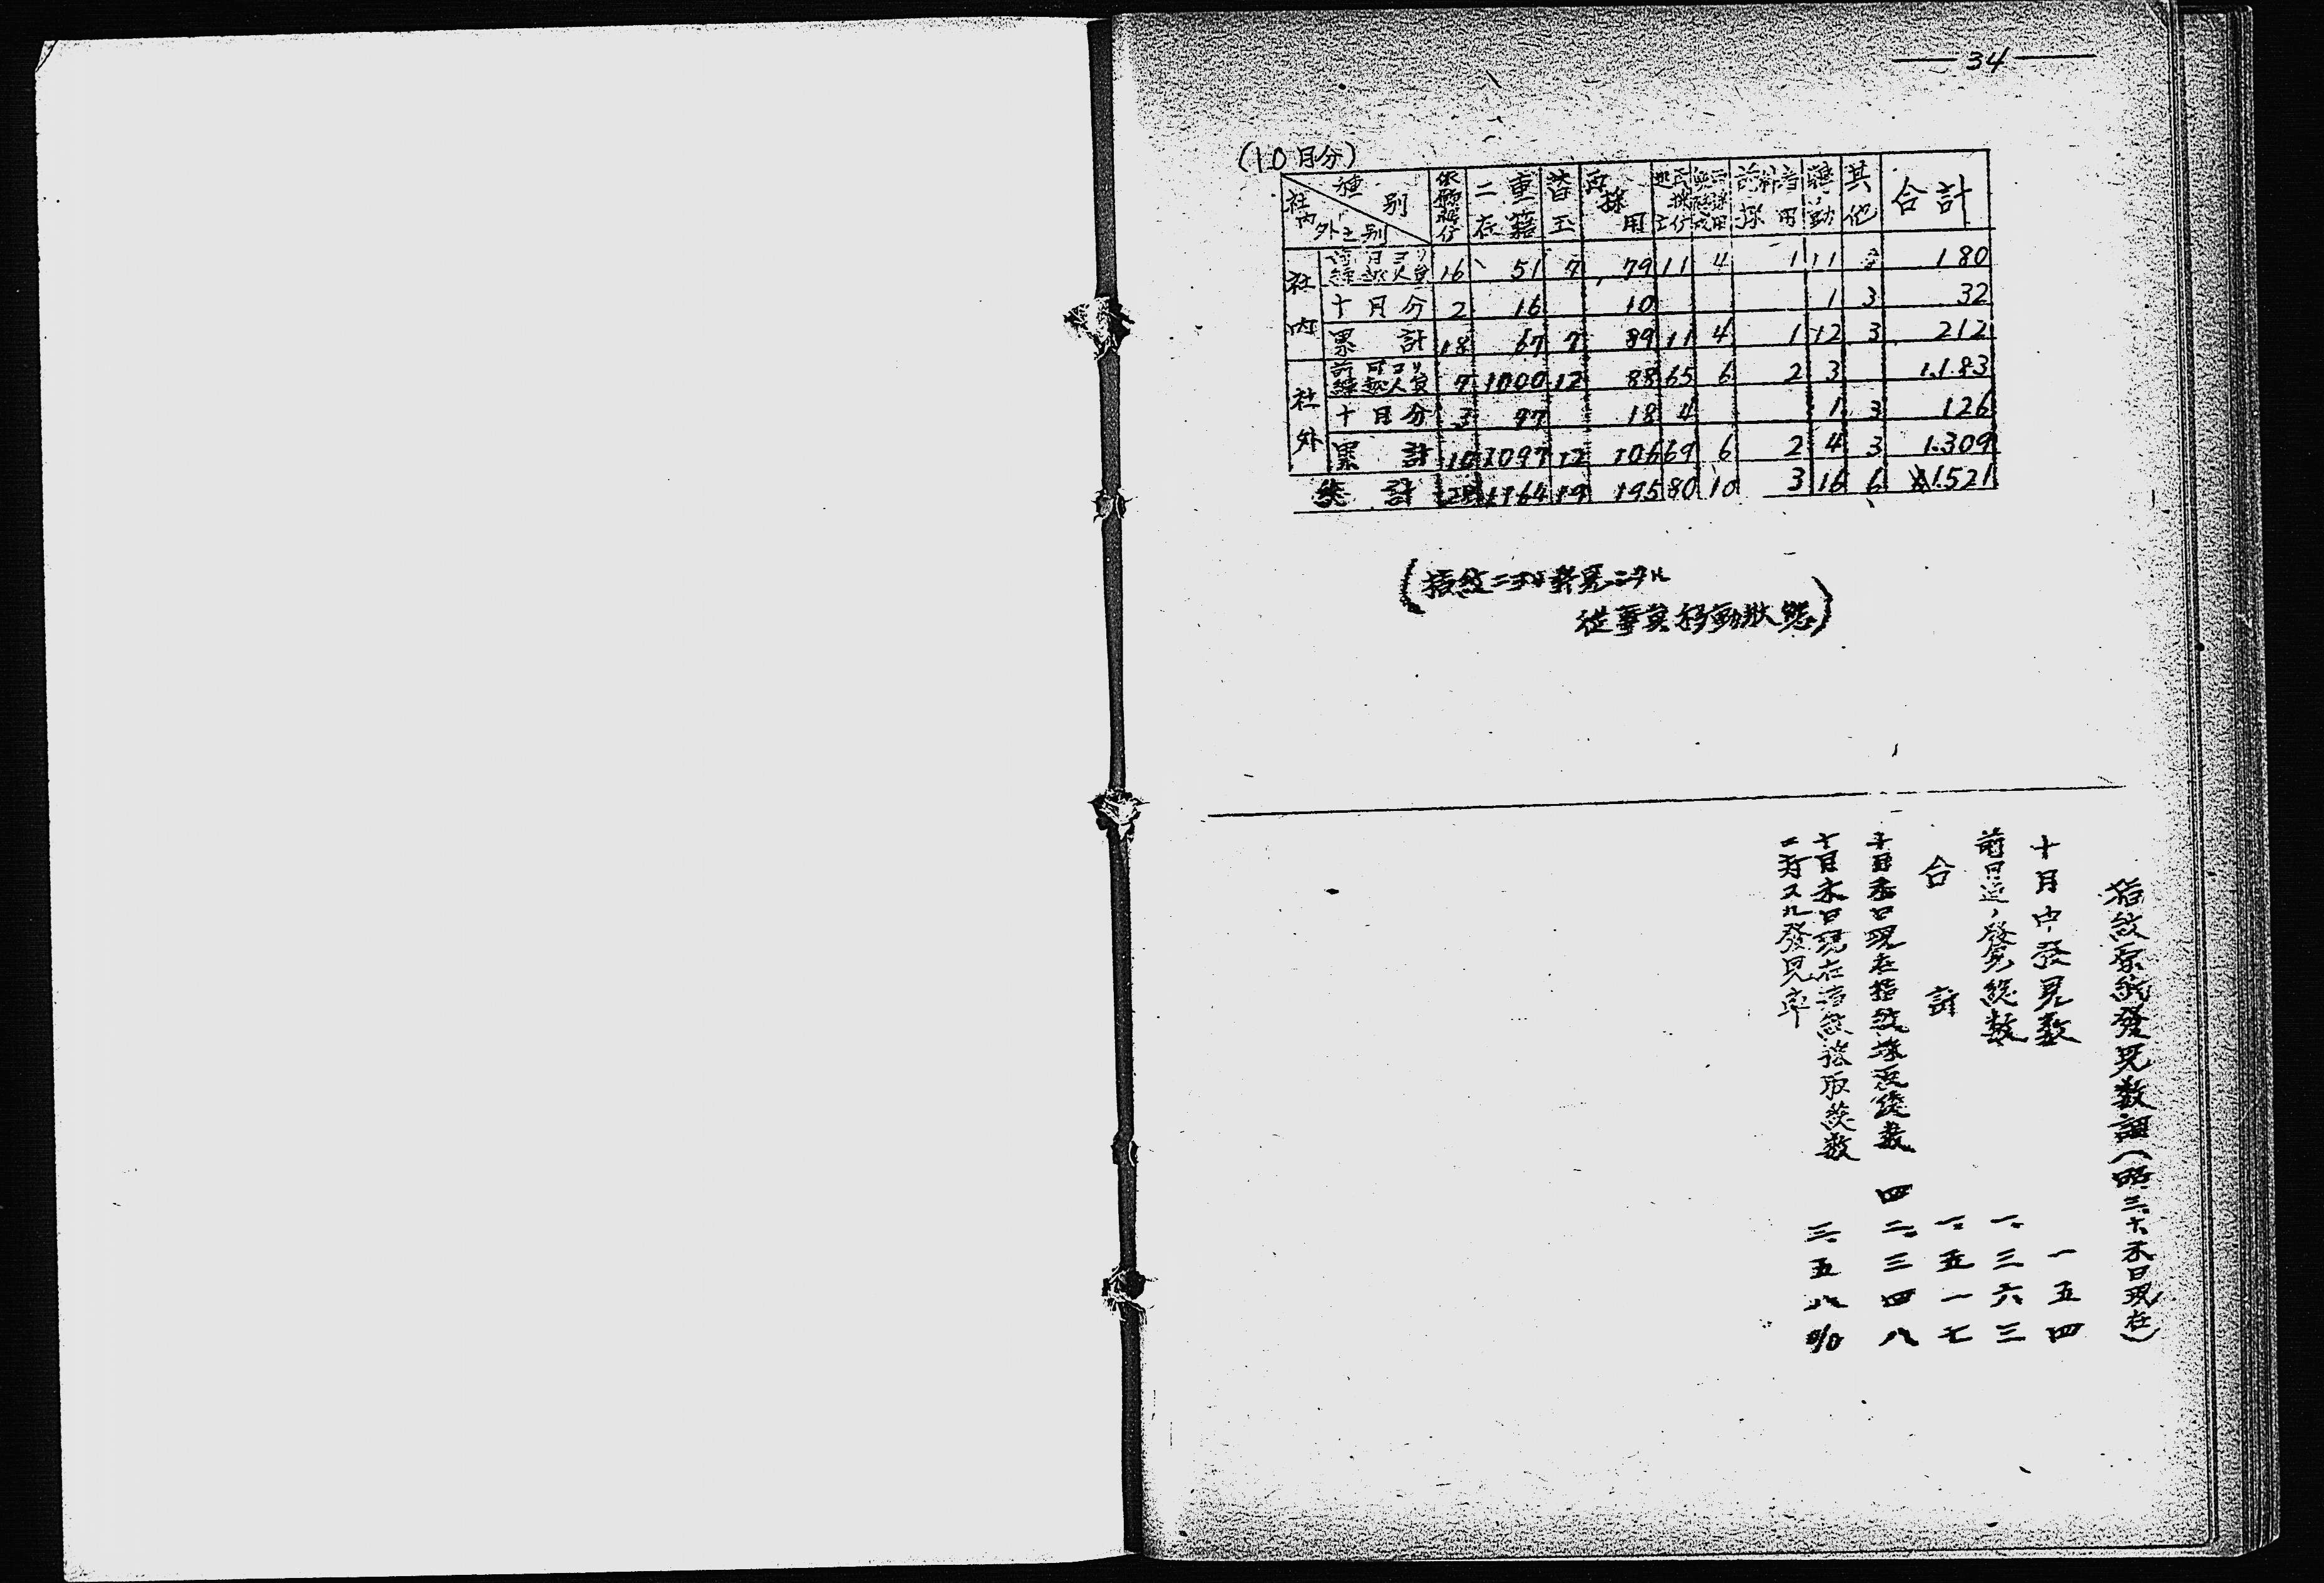 34
(10月分)
種別 社内外之別 二重在籍 替玉 再採用 前科者採用 其他 合計
社内 前月ヨリ繰越人員 16 51 7 79 11 4 1 11 180
十月分 2 16 10 1 3 32
累計 18 67 7 89 11 4 1 12 3 212
社外 前月ヨリ繰越人員 7 1000 12 88 65 6 2 3 1.183
十月分 3 97 18 4 1 3 126
累計 10 1097 12 106 69 6 2 4 3 1.309
総計 28 1164 19 195 80 10 3 16 6 1.521
(指紋ニヨル発見シタル
従事員移動状態)
指紋原紙發見数調(昭三、十、末日現在)
十月中發見数 一五四
前月迄ノ發見総数 一、三六三
合計 一、五一七
十月末日現在指紋採取総数 四二、三四八
十月末日現在指紋採取総数
ニ対スル發見率 三、五八%